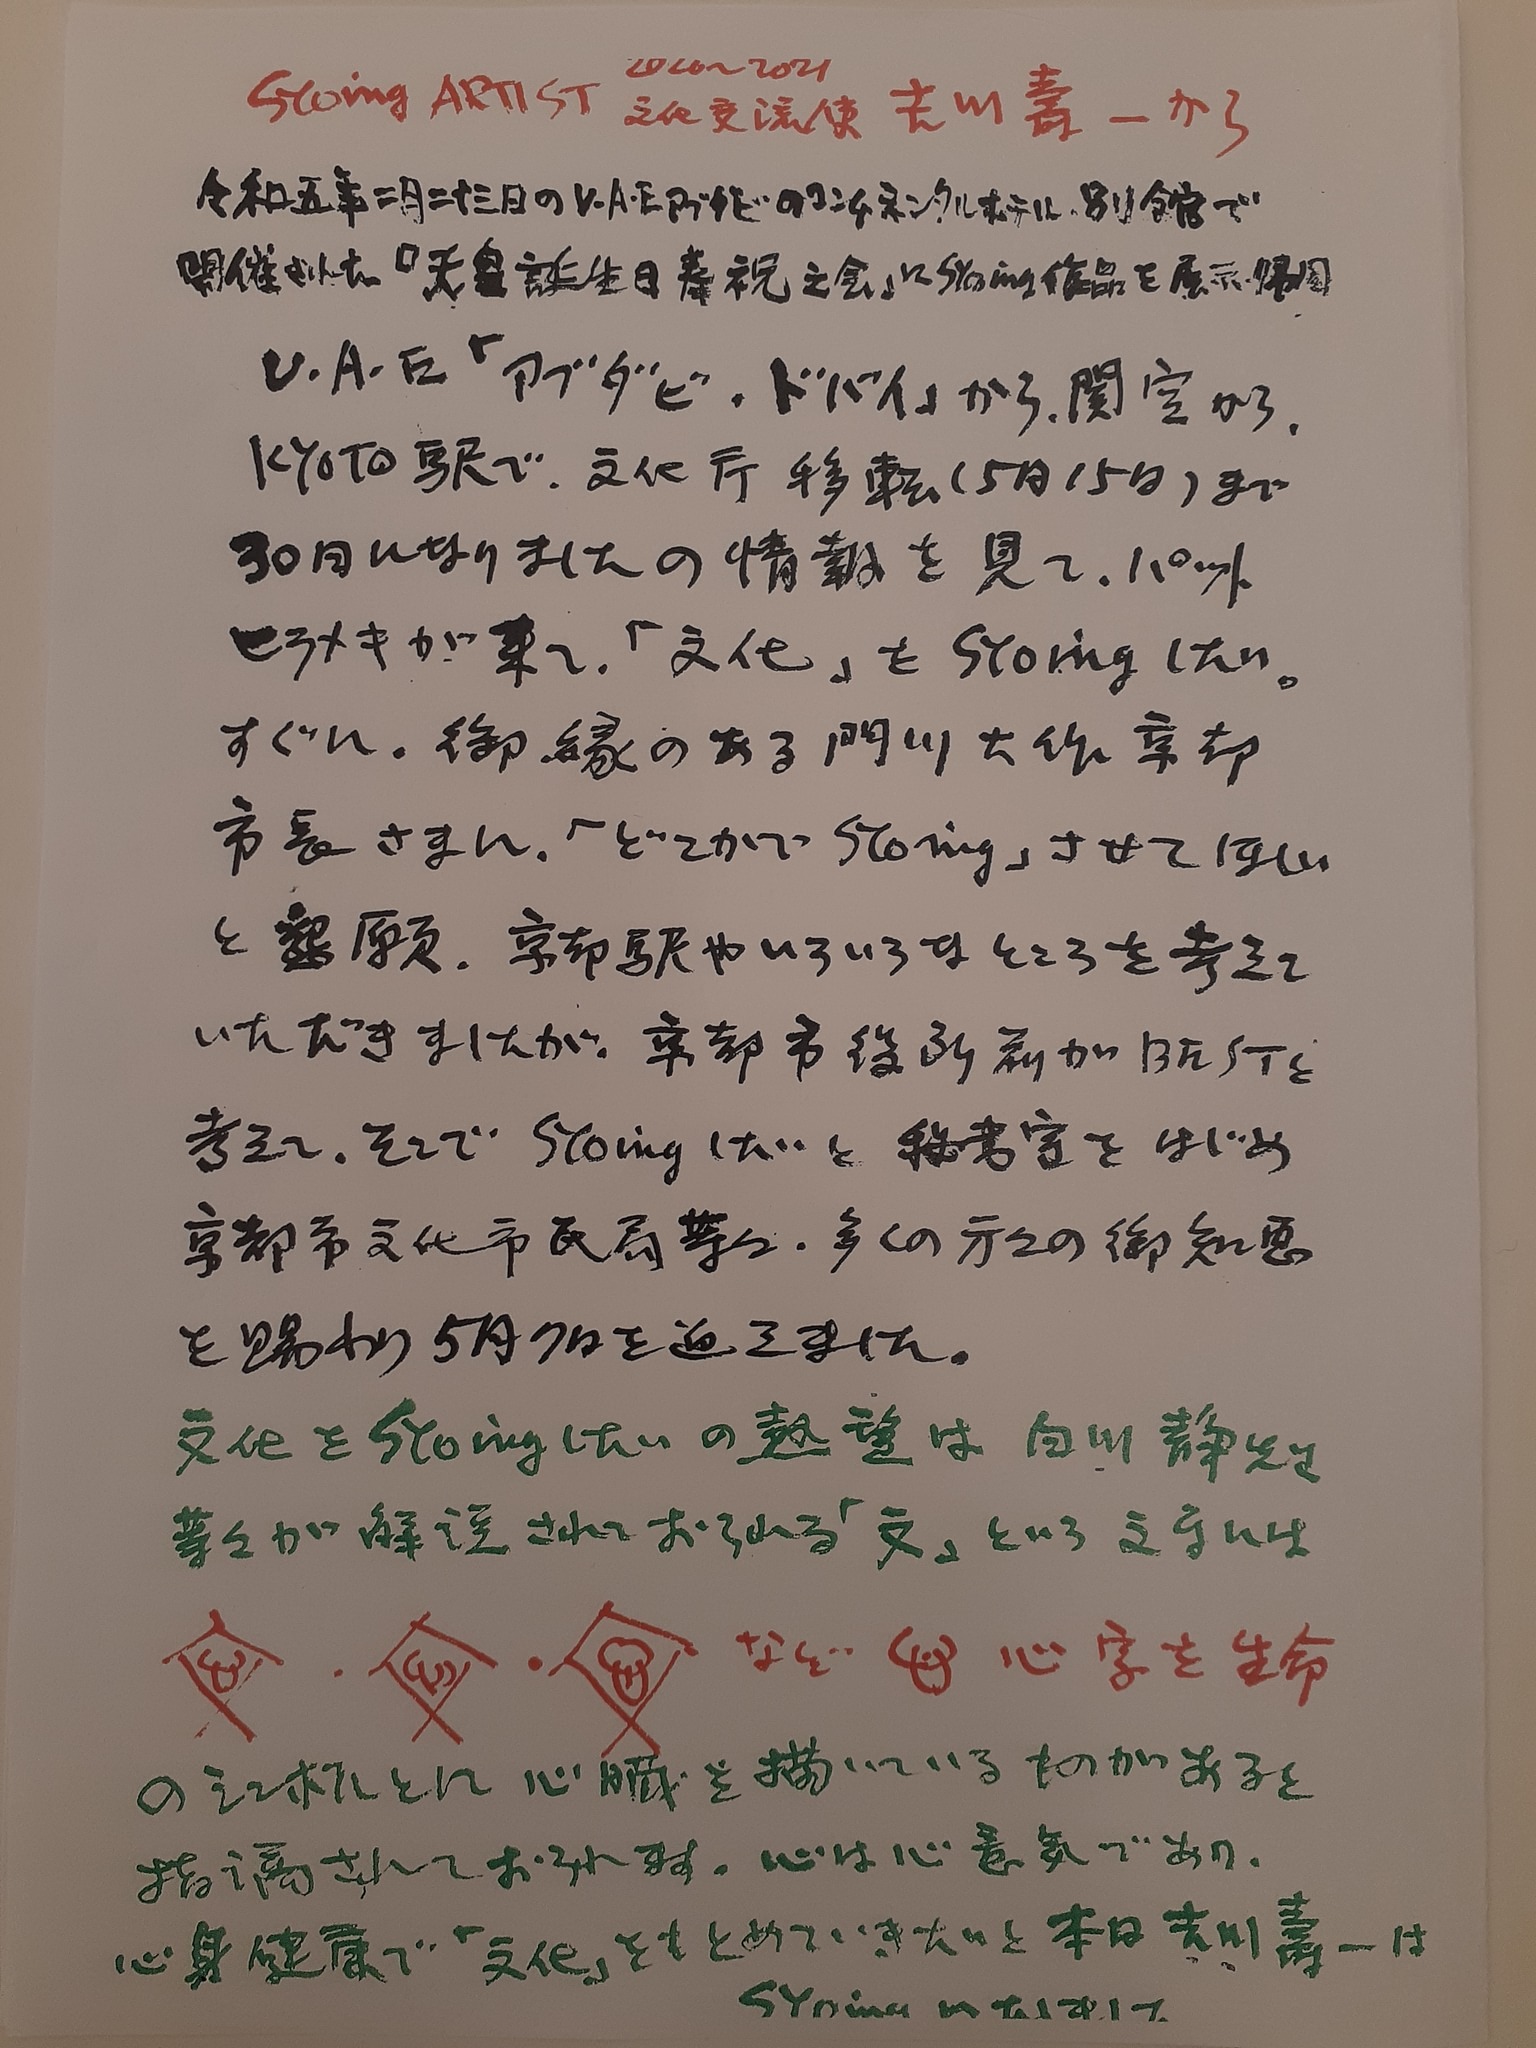 SYOing ARTIST 2020~2021 文化交流使 吉川壽一から
令和五年二月二十三日のU.A.Eアブダビのコンチネンタルホテル別館で
開催された『天皇誕生日奉祝之会』にSYOing作品を展示・帰国
U.A.E「アブダビ・ドバイ」から、関空から、
KYOTO駅で、文化庁移転(5月15日)まで
30日になりましたの情報を見て、パット
ヒラメキが来て、「文化」をSYOingしたい。
すぐに、御縁のある門川大作京都
市長さまに、「どこかでSYOing」させてほしい
と懇願、京都駅やいろいろなところを考えて
いただきましたが、京都市役所前がBESTと
考えて、そこでSYOingしたいと秘書室をはじめ
京都市文化市民局等々、多くの方々の御知恵
を賜わり5月7日を迎えました。
文化をSYOingしたいの熱望は白川静先生
等々が解説されておられる「文」という文字には
・ ・ など 心字を生命
のシンボルとして心臓を描いているものがあると
指摘されておられます。心は心意気であり、
心身健康で「文化」をもとめていきたいと本日吉川壽一は
SYOingいたしまして